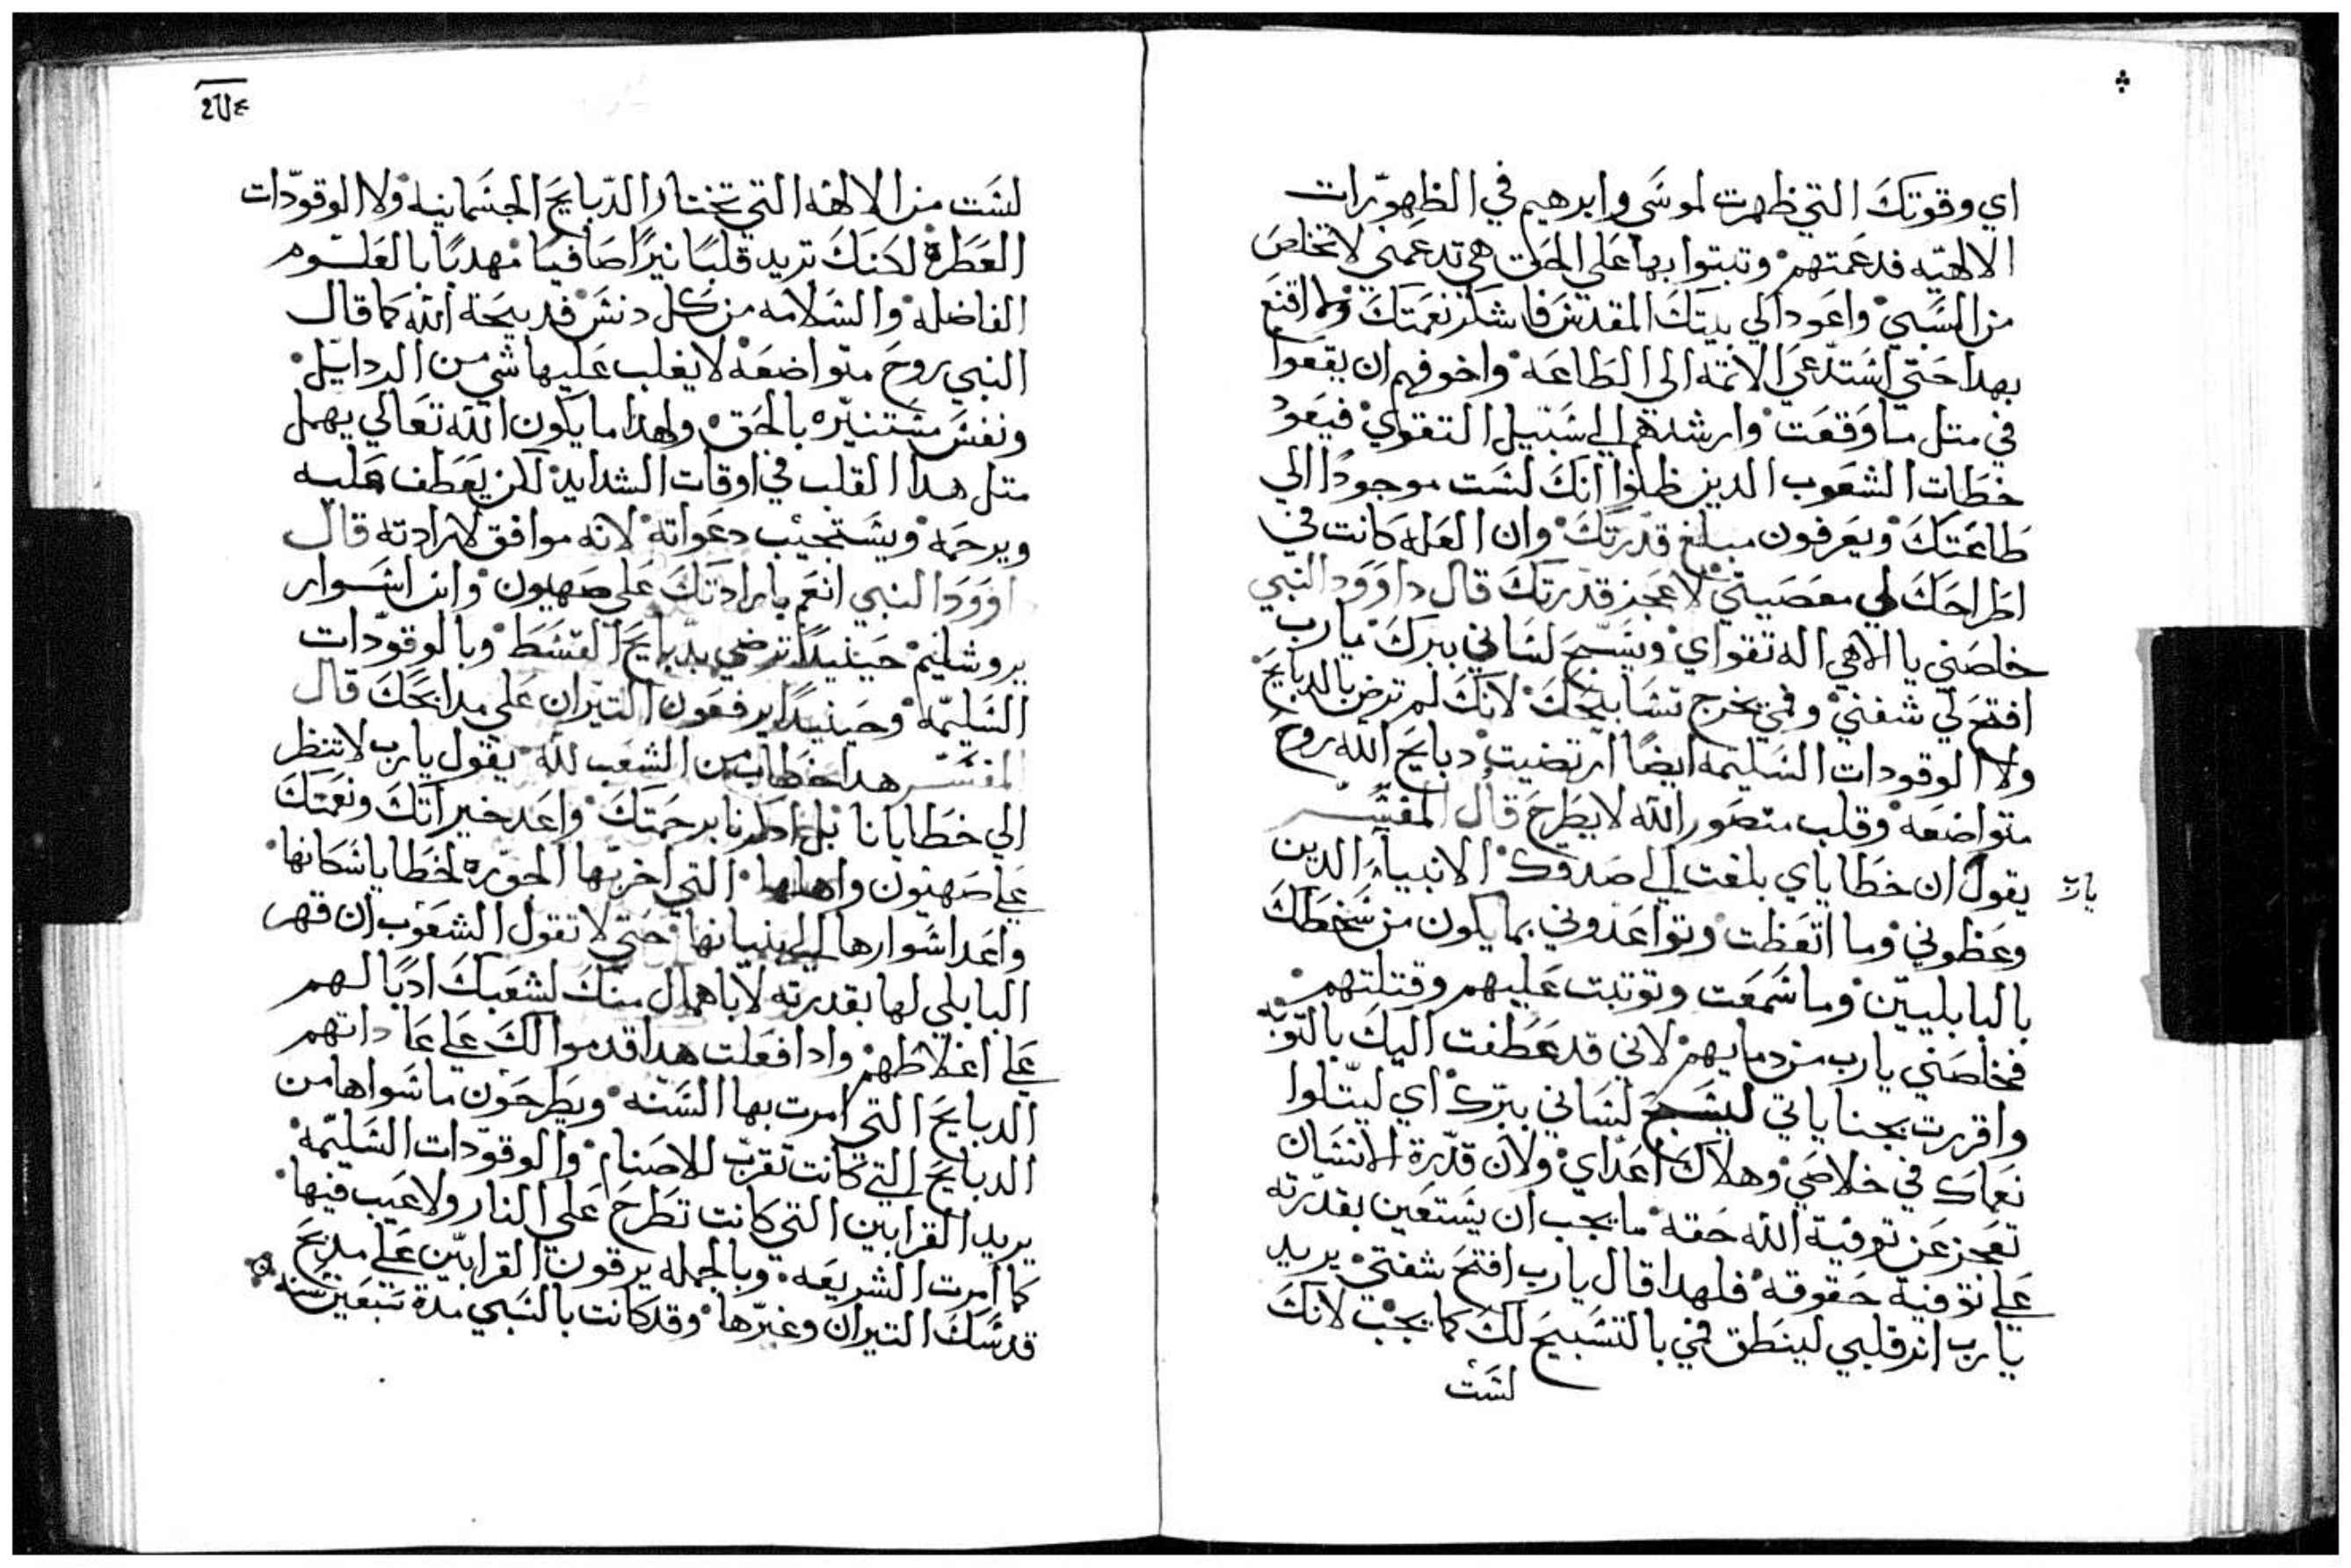 اي وقوتك التي ظهرت لموسي وابرهيم في الظهورات
الالهيه فدعمتهم وتبتوا بها علي الحق هي تدعمني لاتخلص
من السبي واعود الي بيتك المقدس فاشكر نعمتك ولا اقنع
بهدا حتي استدعي الاتمه الي الطاعه واخوفهم ان يقعوا
في متل ما وقعت وارشدهم الي سبيل التقوي فيعود
خطات الشعوب الدين ظنوا انك لست موجودا الي
طاعتك ويعرفون مبلغ قدرتك وان العله كانت في
اطراحك لي معصيتي لا عجز قدرتك قال داوود النبي
خلصني يا الاهي اله تقواي ويسبح لساني ببرك يارب
افتح لي شفتي وفمي يخرج تسابيحك لانك لم ترض بالدبايح
ولا الوقودات السليمه ايضا ارتضيت دبايح الله روح
متواضعه وقلب متصور الله لا يطرح قال المفسر
يقول ان خطاياي بلغت الي صدوك الانبياء الدين
وعظوني وما اتعظت وتواعدوني بما يكون من سخطك
بالبابليين وما سمعت وتوتبت عليهم وقتلتهم
فخلصني يارب من دمايهم لاني قد عطفت اليك بالتوبه
واقررت بجناياتي ليسبح لساني ببرك اي ليتلوا
نعماك في خلاصي وهلاك اعداي ولان قدرة الانسان
تعجز عن توفية الله حقه ما يجب ان يستعين بقدرته
علي توفية حقوقه فلهدا قال يارب افتح شفتي يريد
يارب انر قلبي لينطق فمي بالتسبيح لك كما يجب لانك
لست
لست من الالهه التي تختار الدبايح الجسمانيه ولا الوقودات
العطره لكنك تريد قلبا نيرا صافيا مهدبا بالعلوم
الفاضله والسلامه من كل دنس فدبيحة الله كما قال
النبي روح متواضعه لا يغلب عليها شي من الردايل
ونفس مستنيره بالحق ولهدا ما يكون الله تعالي يهمل
متل هدا القلب في اوقات الشدايد لكن يعطف عليه
ويرحمه ويستجيب دعواته لانه موافق لارادته قال
داوود النبي انعم بارادتك علي صهيون وابن اسوار
يروشليم حينيدا ترضي بدبايح القسط وبالوقودات
السليمه وحينيدا يرفعون التيران علي مدابحك قال
المفسر هدا خطاب من الشعب لله يقول يارب لا تنظر
الي خطايانا بل ادكرنا برحمتك واعد خيراتك ونعمتك
علي صهيون واهلها التي اخربها الحوره لخطايا سكانها
واعد اسوارها الي بنيانها حتي لا تقول الشعوب ان قهر
البابلي لها بقدرته لا باهمال منك لشعبك ادبا لهم
علي اغلاطهم وادا فعلت هدا قدموا لك علي عاداتهم
الدبايح التي امرت بها السنه ويطرحون ما سواها من
الدبايح التي كانت تقرب للاصنام والوقودات السليمه
يريد القرابين التي كانت تطرح علي النار ولا عيب فيها
كما امرت الشريعه وبالجمله يرقون القرابين علي مدبح
قدسك التيران وغيرها وقد كانت بالسبي مدة سبعين سنه